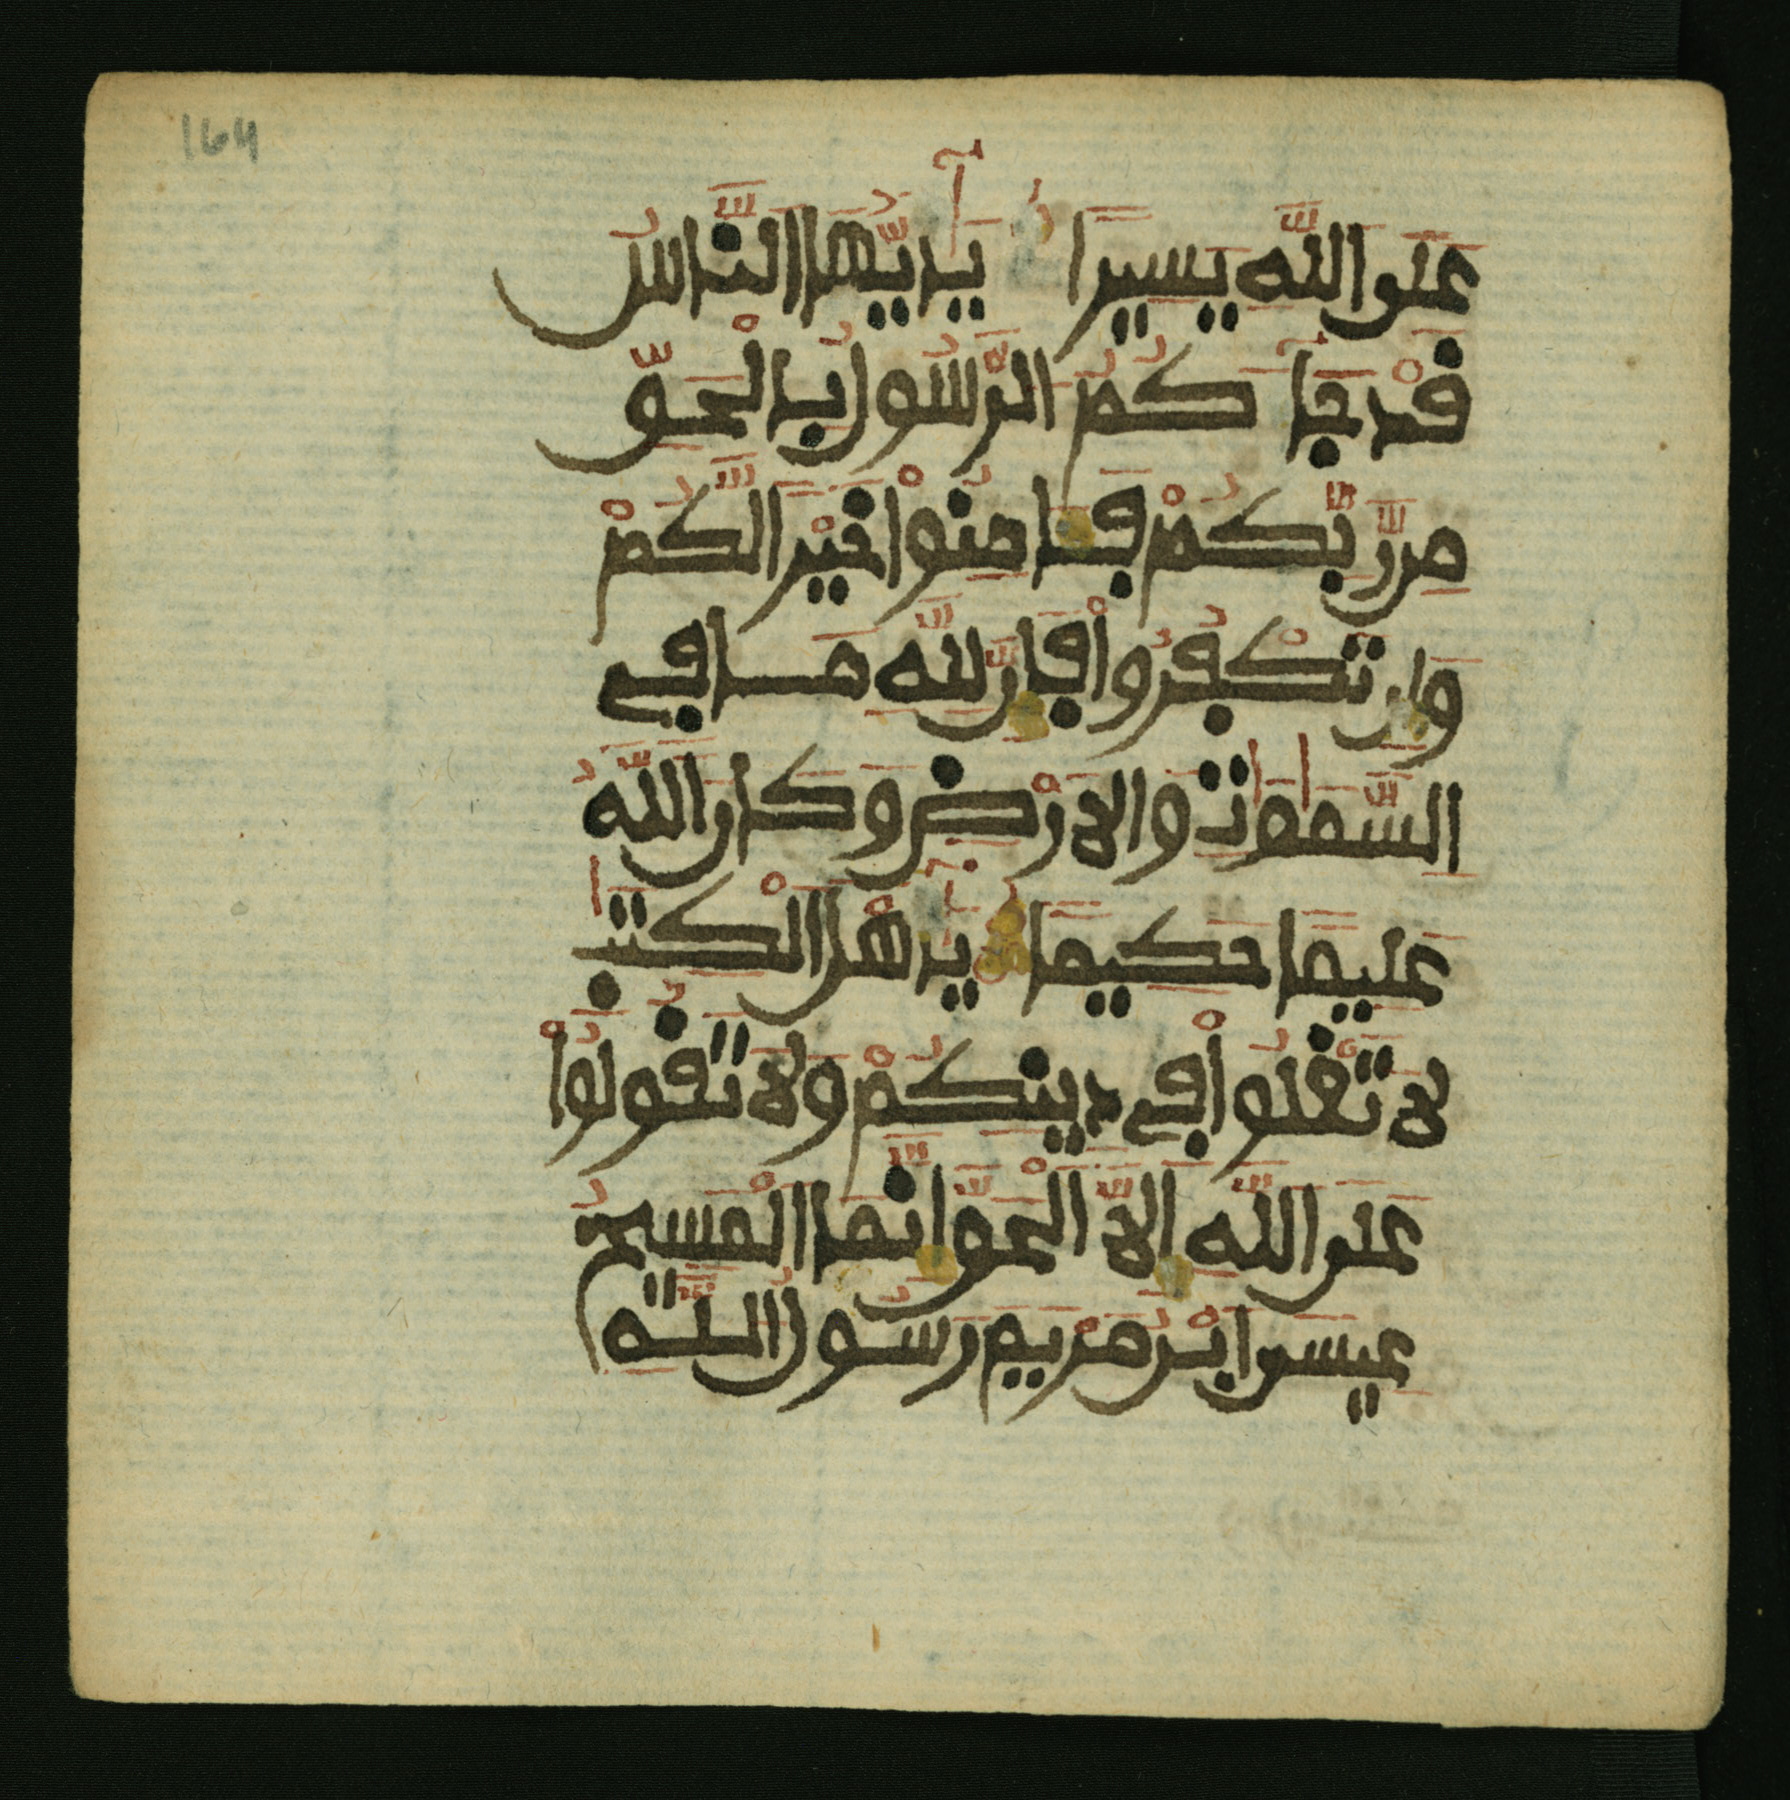 164
عَلَى اللَّهِ يَسِيرًا يَٰٓأَيُّهَا النَّاسُ
قَدْ جَآءَكُمُ الرَّسُولُ بِالْحَقِّ
مِن رَّبِّكُمْ فَـَٔامِنُوا۟ خَيْرًا لَّكُمْ
وَإِن تَكْفُرُوا۟ فَإِنَّ لِلَّهِ مَا فِى
السَّمَٰوَٰتِ وَالْأَرْضِ وَكَانَ اللَّهُ
عَلِيمًا حَكِيمًا يَٰٓأَهْلَ الْكِتَٰبِ
لَا تَغْلُوا۟ فِى دِينِكُمْ وَلَا تَقُولُوا۟
عَلَى اللَّهِ إِلَّا الْحَقَّ إِنَّمَا الْمَسِيحُ
عِيسَى ابْنُ مَرْيَمَ رَسُولُ اللَّهِ